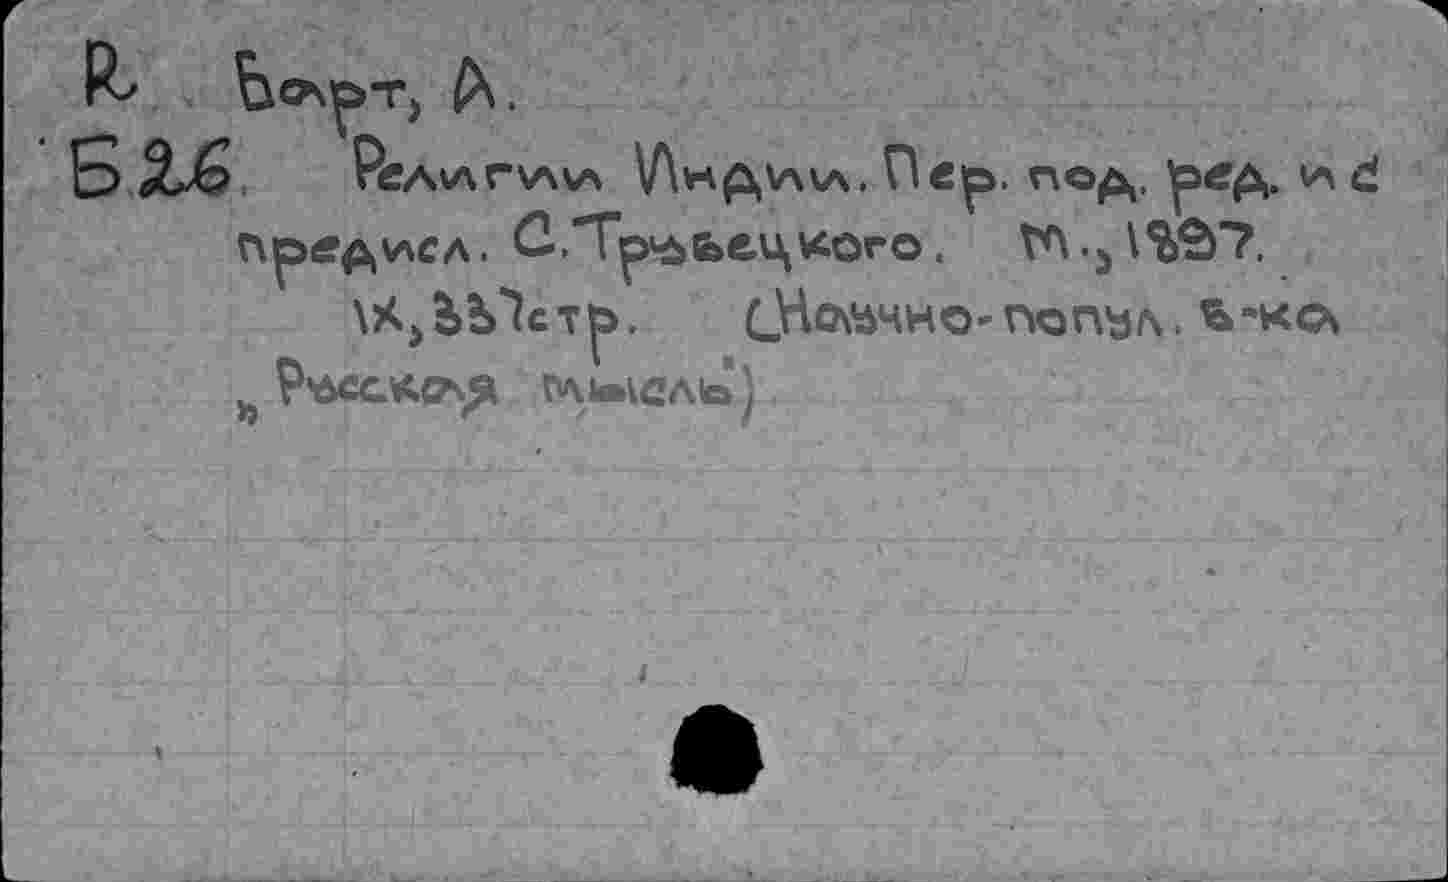 R Барт, А.
Б26 Религии Индии. Пер. под. ред. и с
предисл. С. Трубецкого. М., 1897.
IX, 337 стр. (Научно-попул. б-ка
„Русская мысль")